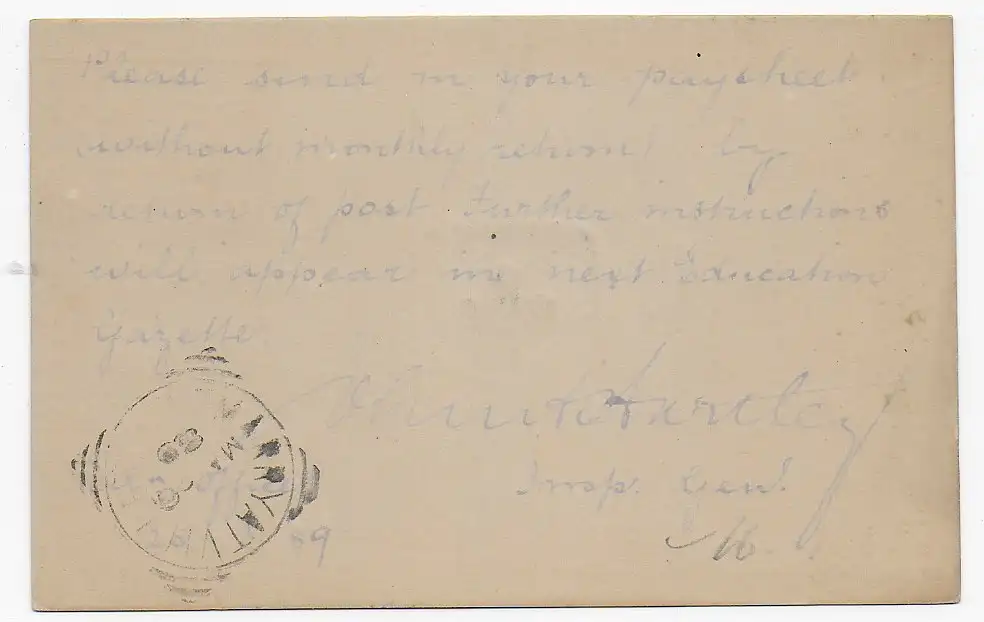 Please send in your paysheet
(without monthly return) by
return of post Further instructions
will appear in next Education
Gazette
Hartley
Insp. Genl.
Office
89
16